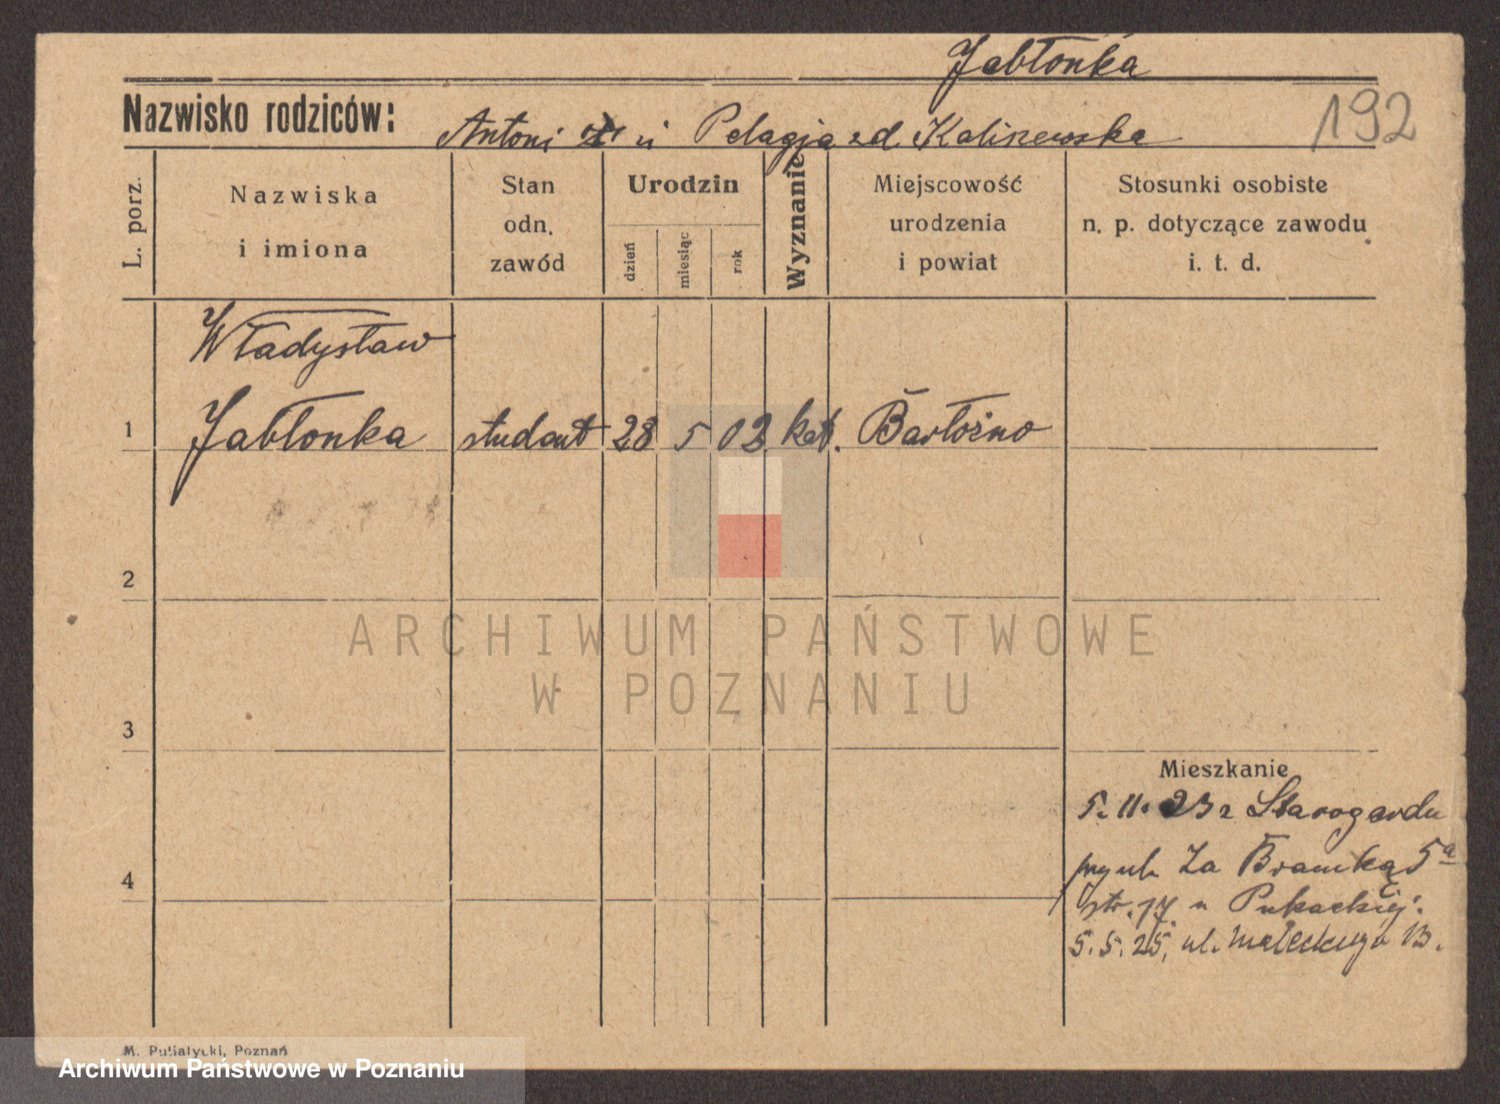 Jabłonka
Nazwisko rodziców: Antoni i Pelagja zd Kaliszewska
192
L. porz.
Nazwiska
i imiona
Stan
odn.
zawód
Urodzin
dzień
miesiąc
rok
Wyznanie
Miejscowość
urodzenia
i powiat
Stosunki osobiste
n. p. dotyczące zawodu
i. t. d.
Władysław
1 Jabłonka student 28 5 03 kat. Bartożno
2
3
4
Mieszkanie
5. 11. 23 z Starogardu
przy ul. Za Bramką 5a
ptr. 17 u Pukackiej.
5. 5. 25, ul. Małeckiego 13.
M. Putiatycki, Poznań
ARCHIWUM PAŃSTWOWE
W POZNANIU
Archiwum Państwowe w Poznaniu